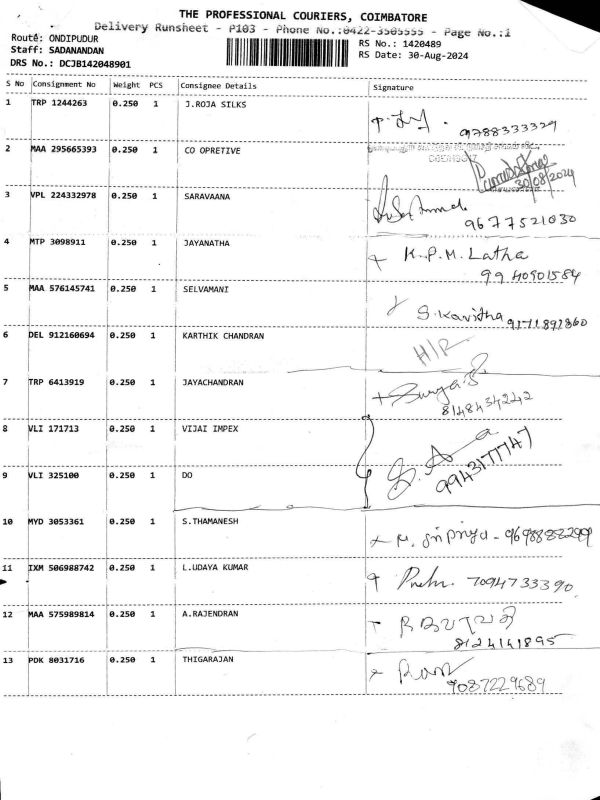 THE PROFESSIONAL COURIERS, COIMBATORE
Delivery Runsheet - P103 - Phone No.:0422-3505555 - Page No.:1
Route: ONDIPUDUR
RS No.: 1420489
Staff: SADANANDAN
RS Date: 30-Aug-2024
DRS No.: DCJB142048901
S No Consignment No Weight PCS Consignee Details Signature
1 TRP 1244263 0.250 1 J.ROJA SILKS
9788333329
2 MAA 295665393 0.250 1 CO OPRETIVE
30/08/2024
3 VPL 224332978 0.250 1 SARAVAANA
9677521030
4 MTP 3098911 0.250 1 JAYANATHA K.P.M. Latha
9940901584
5 MAA 576145741 0.250 1 SELVAMANI
S. Kavitha 9171892860
6 DEL 912160694 0.250 1 KARTHIK CHANDRAN
H/R
7 TRP 6413919 0.250 1 JAYACHANDRAN Surya.S.
8148434242
8 VLI 171713 0.250 1 VIJAI IMPEX
9943177747
9 VLI 325100 0.250 1 DO
10 MYD 3053361 0.250 1 S.THAMANESH
M. Sripriya - 9698888299
11 IXM 506988742 0.250 1 L.UDAYA KUMAR
7094733390
12 MAA 575989814 0.250 1 A.RAJENDRAN
8124141895
13 PDK 8031716 0.250 1 THIGARAJAN
9087229689